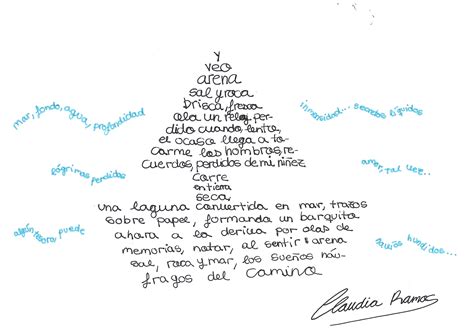 y
veo
arena
sal y roca
brisca, fresca
ola un reloj per-
dido cuando, lento,
el ocaso llega a to-
carme los hombros, re-
cuerdos, perdidos de mi niñez
corre
en tierra
seca,
una laguna convertida en mar, trazos
sobre papel, formando un barquito
ahora a la deriva por olas de
memorias, notar, al sentir arena
sal, roca y mar, los sueños náu-
fragos del camino
mar, fondo, agua, profundidad
lágrimas perdidas
algún tesoro, puede
inmensidad... secretos líquidos
amor, tal vez...
navíos hundidos...
Claudia Ramos